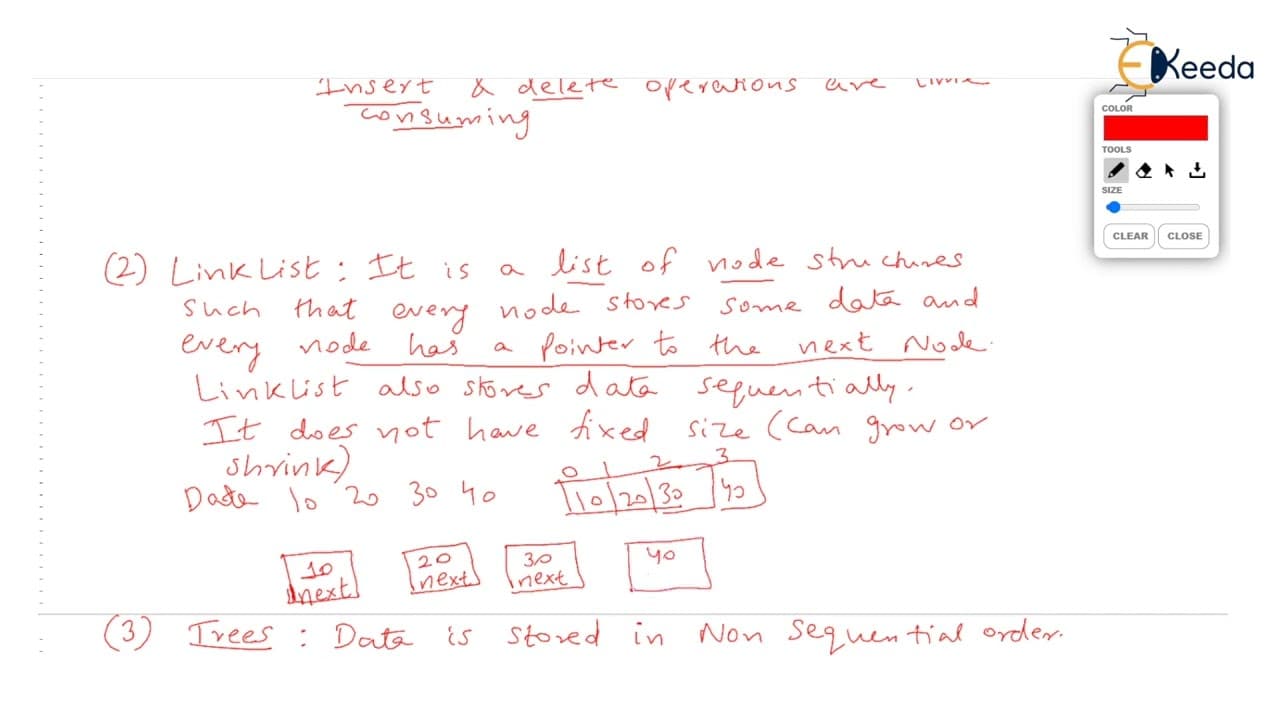 Insert & delete operations are time
consuming
EKeeda
COLOR
TOOLS
SIZE
CLEAR CLOSE
(2) Link List : It is a list of node structures
such that every node stores some data and
every node has a pointer to the next Node.
Link List also stores data sequentially.
It does not have fixed size (can grow or
shrink)
0 1 2 3
Data 10 20 30 40 10 20 30 40
10 20 30 40
next next next
(3) Trees : Data is stored in Non Sequential order.